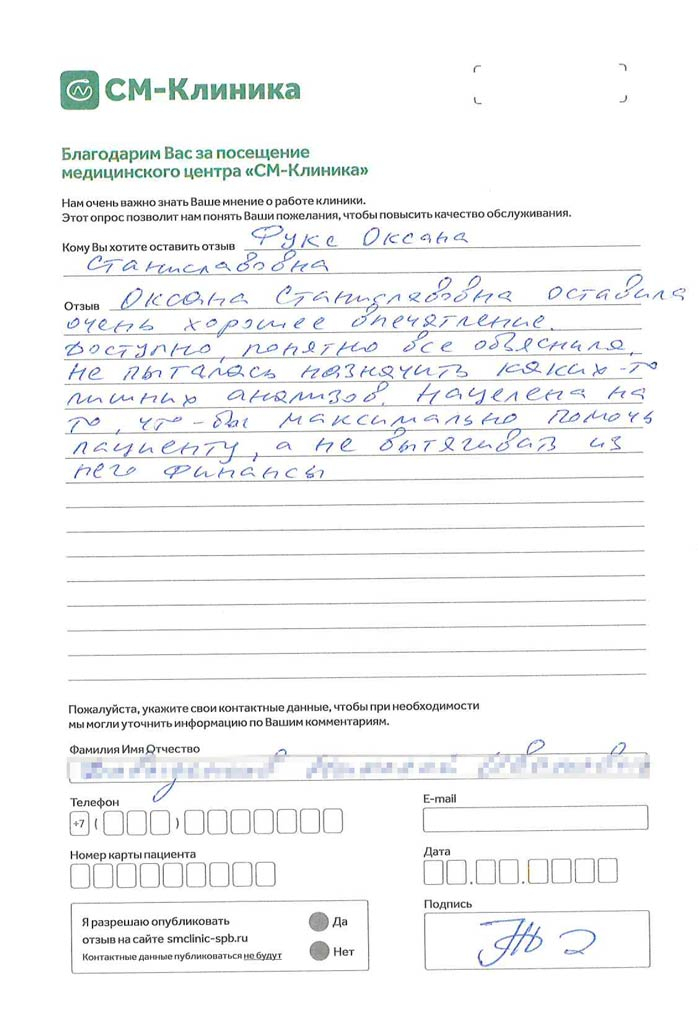 СМ-Клиника
Благодарим Вас за посещение
медицинского центра «СМ-Клиника»
Нам очень важно знать Ваше мнение о работе клиники.
Этот опрос позволит нам понять Ваши пожелания, чтобы повысить качество обслуживания.
Кому Вы хотите оставить отзыв Фукс Оксана
Станиславовна
Отзыв Оксана Станиславовна оставила
очень хорошее впечатление.
Доступно, понятно все объяснила,
не пыталась назначить каких-то
лишних анализов. Нацелена на
то, что-бы максимально помочь
пациенту, а не вытягивать из
него финансы
Пожалуйста, укажите свои контактные данные, чтобы при необходимости
мы могли уточнить информацию по Вашим комментариям.
Фамилия Имя Отчество
Телефон
E-mail
+7 ( )
Номер карты пациента
Дата
Подпись
Я разрешаю опубликовать
отзыв на сайте smclinic-spb.ru
Контактные данные публиковаться не будут
Да
Нет